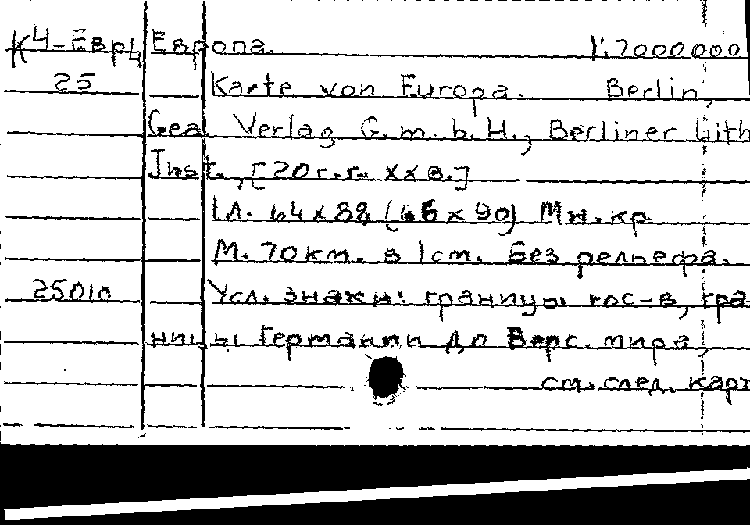 К4-Евр Европа. 1:7000000
25 Karte von Europa. Berlin,
Gea Verlag G.m.b.H., Berliner Lith
Inst., [20 г.г. XX в.]
1 л. 64x88 (66x90) Мн.кр.
М. 70 км. в 1 см. Без рельефа.
25010 Усл. знаки: границы гос-в, гра
ницы Германии до Верс. мира,
см. след. карт